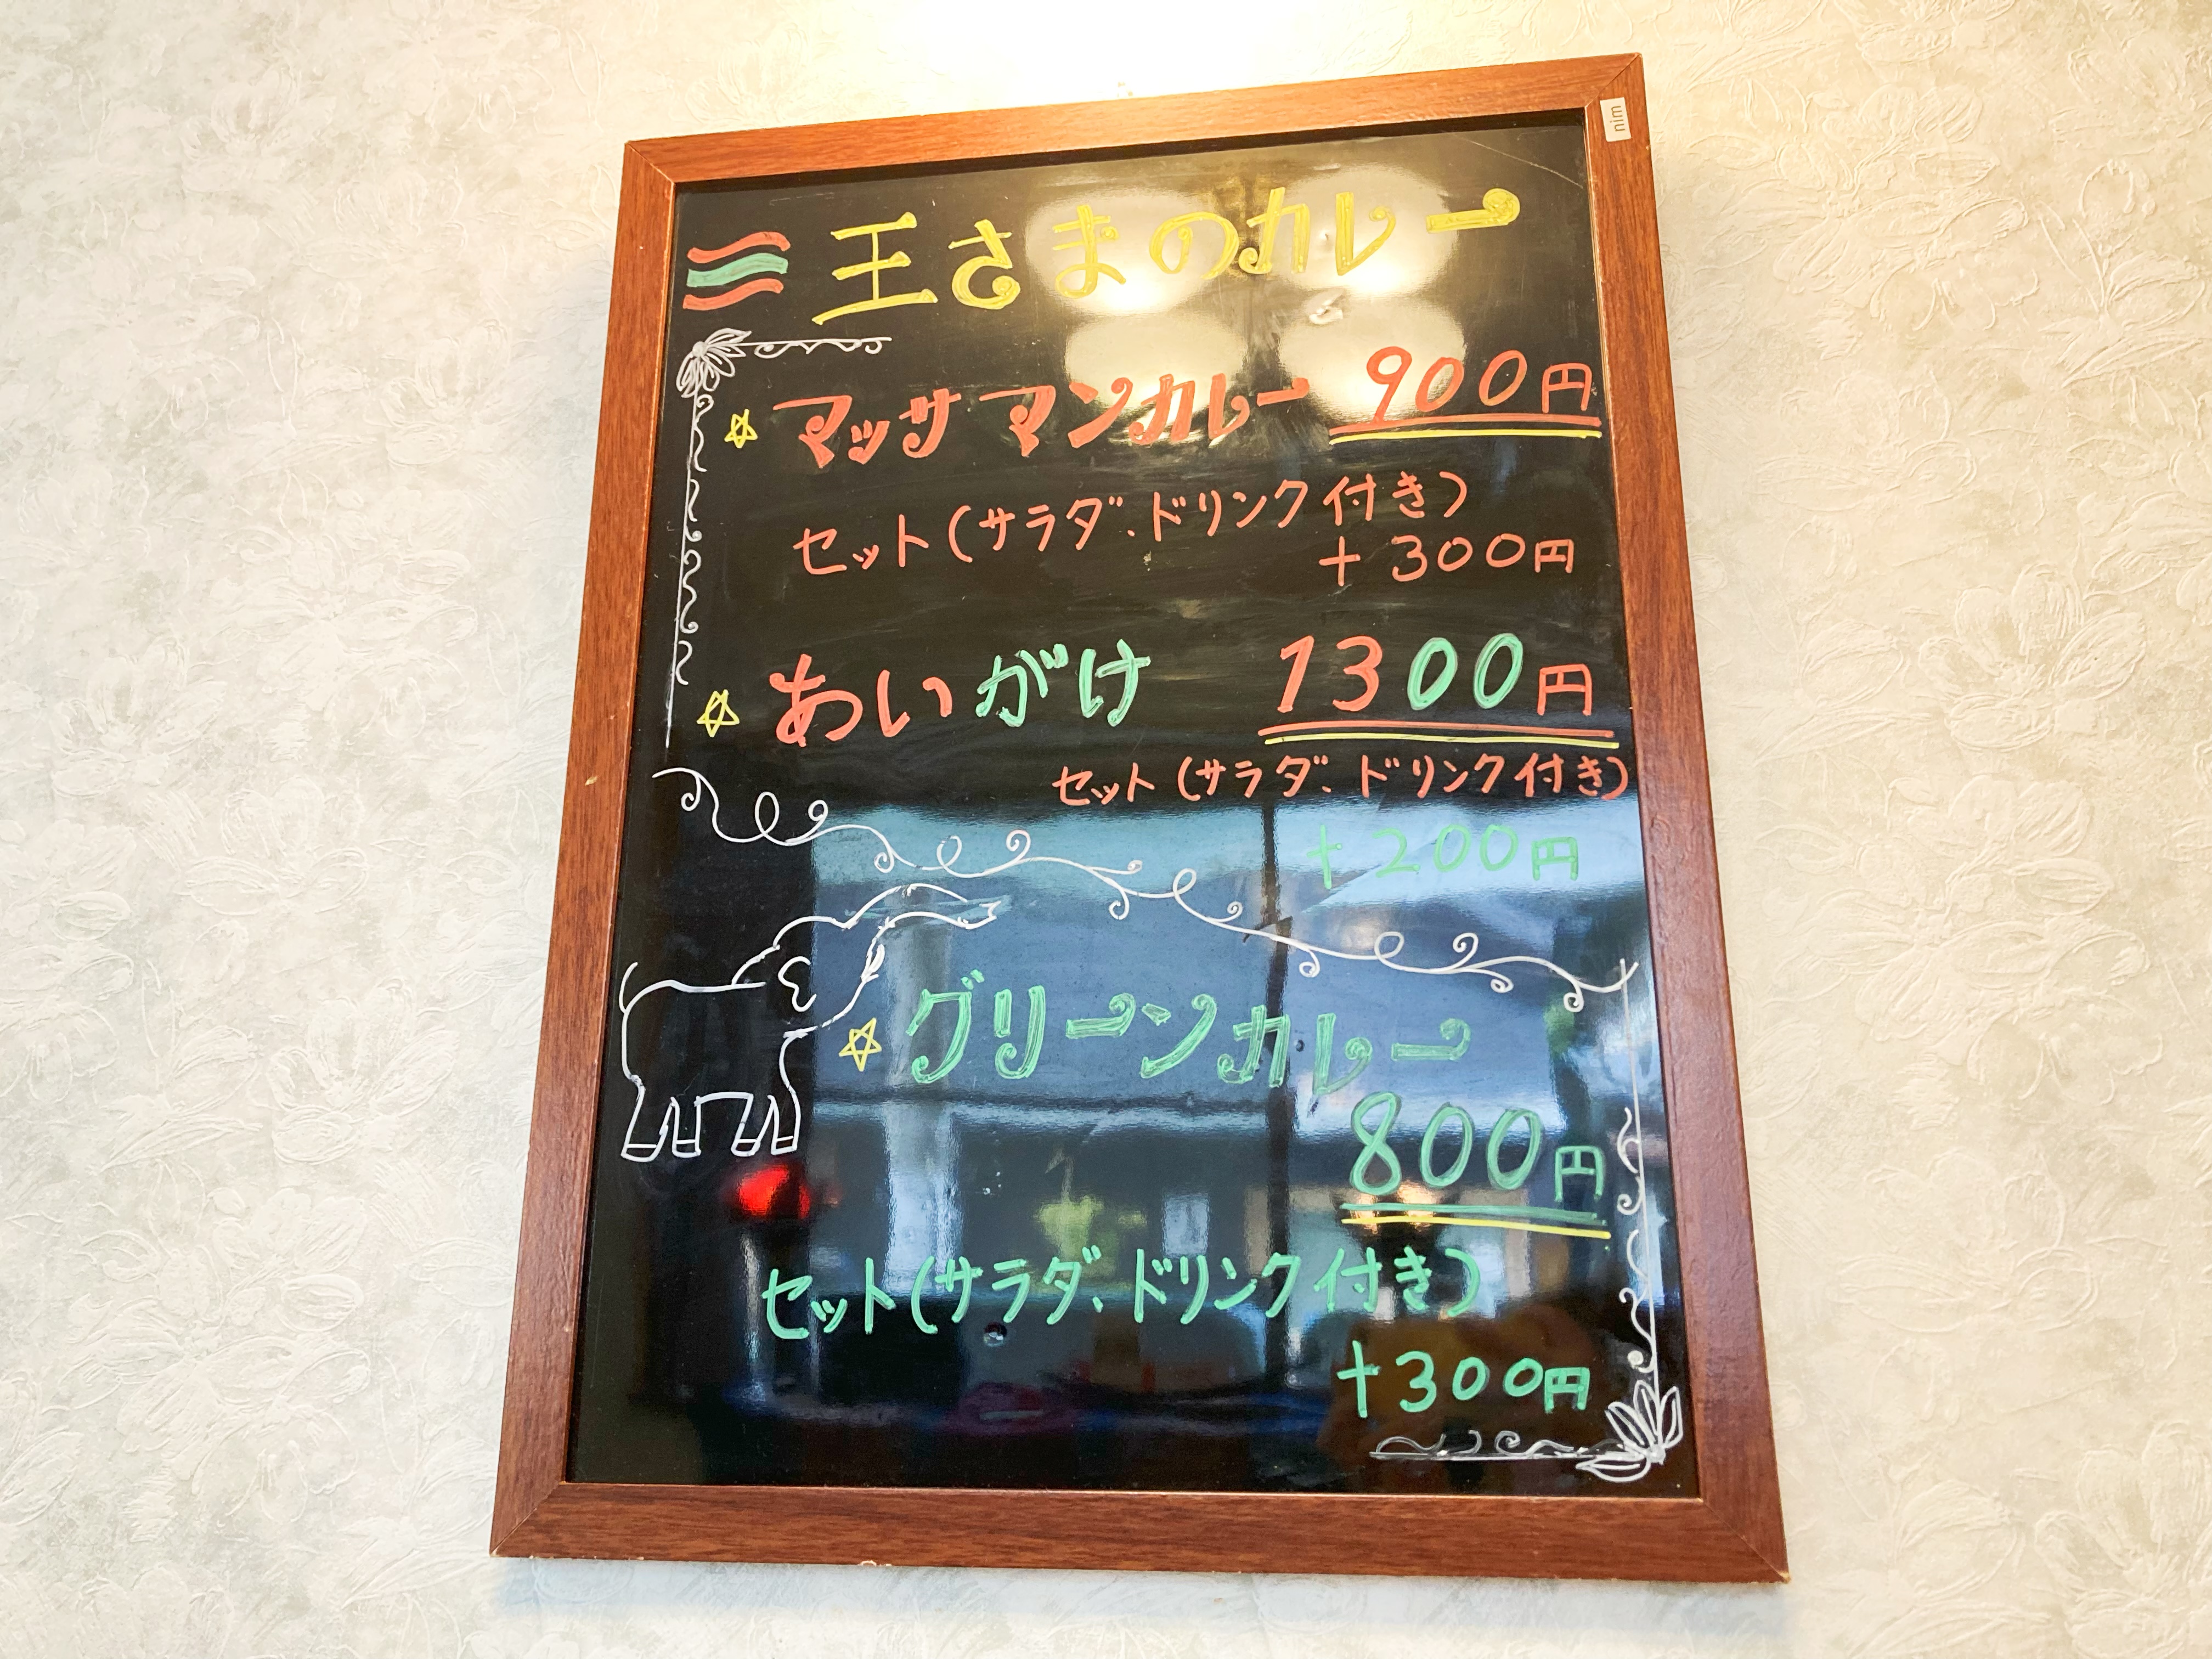 nim
王さまのカレー
マッサマンカレー 900円
セット(サラダ、ドリンク付き)
+300円
あいがけ 1300円
セット(サラダ、ドリンク付き)
+200円
グリーンカレー
800円
セット(サラダ、ドリンク付き)
+300円